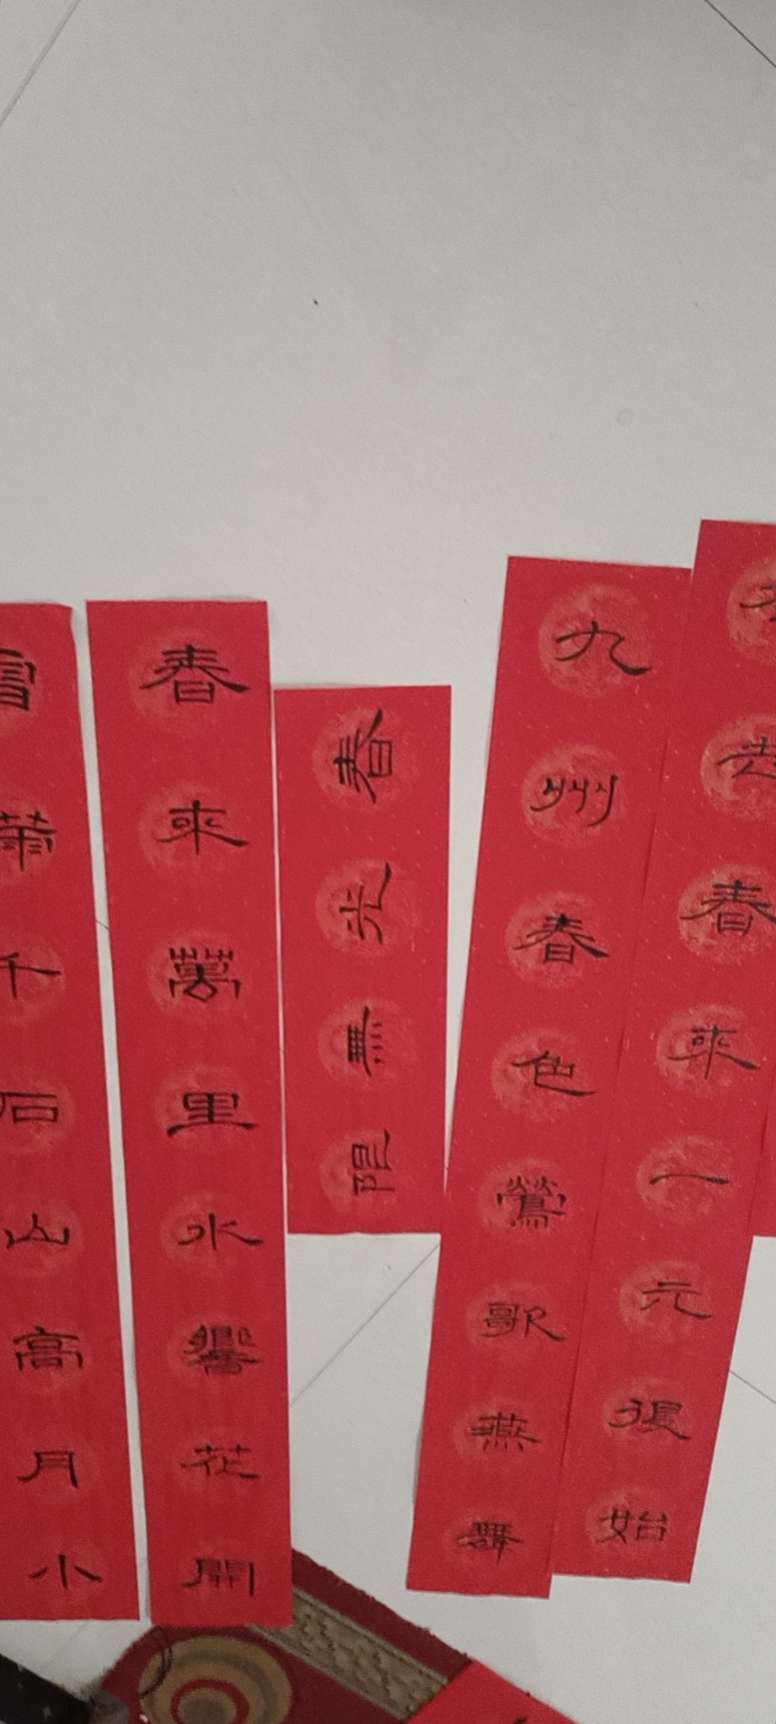 去春來一元復始
九州春色鶯歌燕舞
春光無限
春來萬里水響花開
雪千石山高月小